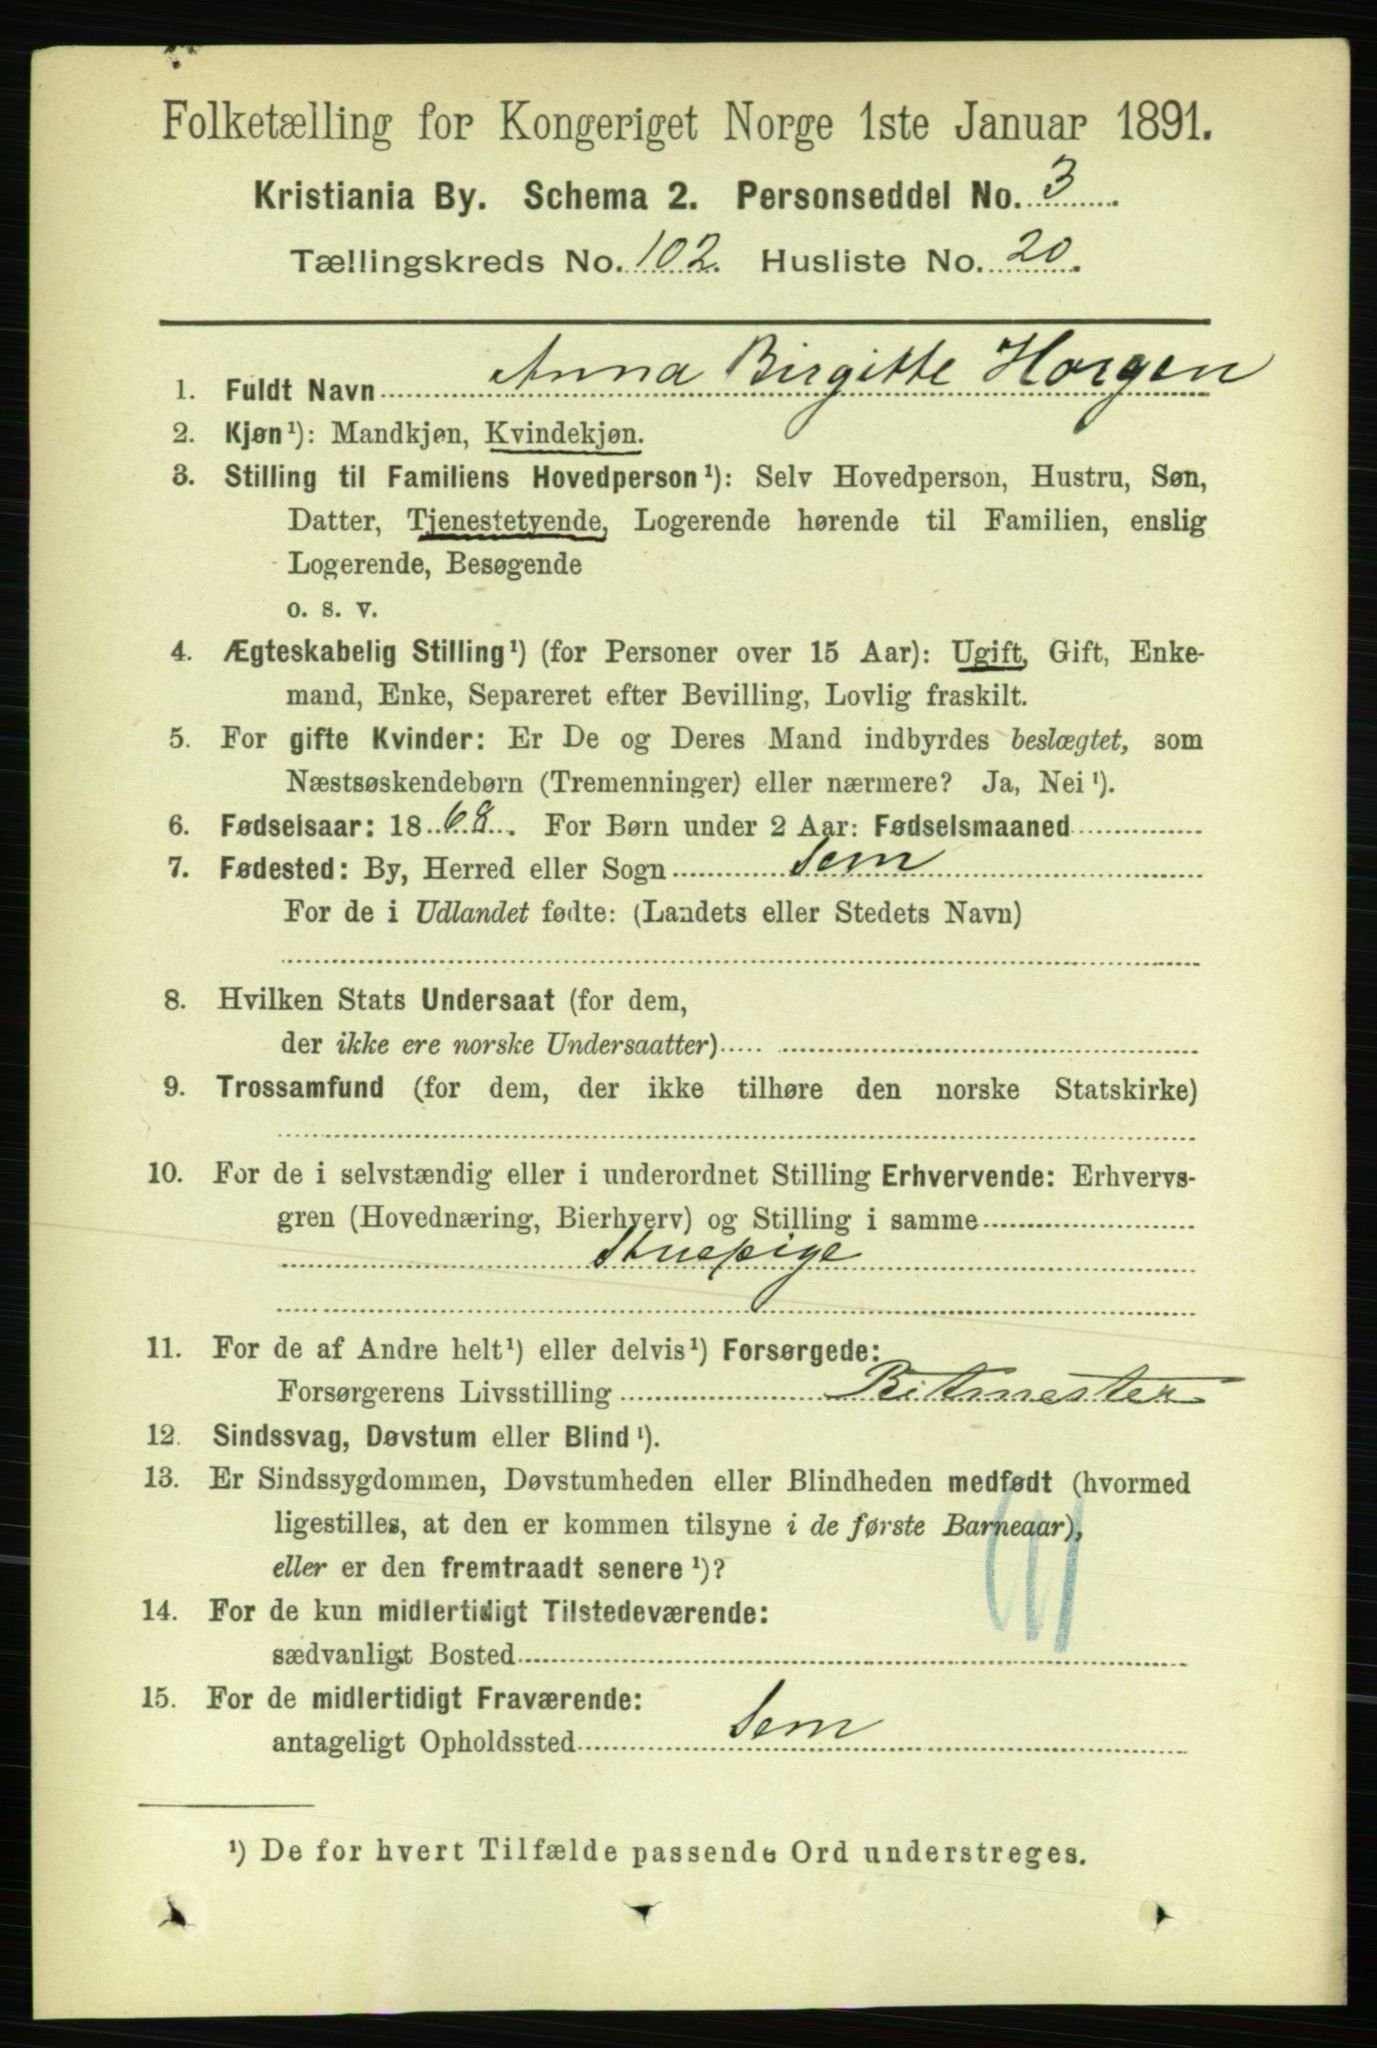 Folketælling for Kongeriget Norge 1ste Januar 1891.
Kristiania By. Schema 2. Personseddel No. 3
Tællingskreds No. 102. Husliste No. 20.
1. Fuldt Navn Anna Birgitte Horgen
2. Kjøn¹): Mandkjøn, Kvindekjøn.
3. Stilling til Familiens Hovedperson¹): Selv Hovedperson, Hustru, Søn,
Datter, Tjenestetyende, Logerende hørende til Familien, enslig
Logerende, Besøgende
o. s. v.
4. Ægteskabelig Stilling¹) (for Personer over 15 Aar): Ugift, Gift, Enke-
mand, Enke, Separeret efter Bevilling, Lovlig fraskilt.
5. For gifte Kvinder: Er De og Deres Mand indbyrdes beslægtet, som
Næstsøskendebørn (Tremenninger) eller nærmere? Ja, Nei¹).
6. Fødselsaar: 1868. For Børn under 2 Aar: Fødselsmaaned
7. Fødested: By, Herred eller Sogn Sem
For de i Udlandet fødte: (Landets eller Stedets Navn)
8. Hvilken Stats Undersaat (for dem,
der ikke ere norske Undersaatter)
9. Trossamfund (for dem, der ikke tilhøre den norske Statskirke)
10. For de i selvstændig eller i underordnet Stilling Erhvervende: Erhvervs-
gren (Hovednæring, Bierhverv) og Stilling i samme
Stuepige
11. For de af Andre helt¹) eller delvis¹) Forsørgede:
Forsørgerens Livsstilling Ritmester
12. Sindssvag, Døvstum eller Blind¹).
13. Er Sindssygdommen, Døvstumheden eller Blindheden medfødt (hvormed
ligestilles, at den er kommen tilsyne i de første Barneaar),
eller er den fremtraadt senere¹)?
14. For de kun midlertidigt Tilstedeværende:
sædvanligt Bosted
15. For de midlertidigt Fraværende:
antageligt Opholdssted Sem
¹) De for hvert Tilfælde passende Ord understreges.